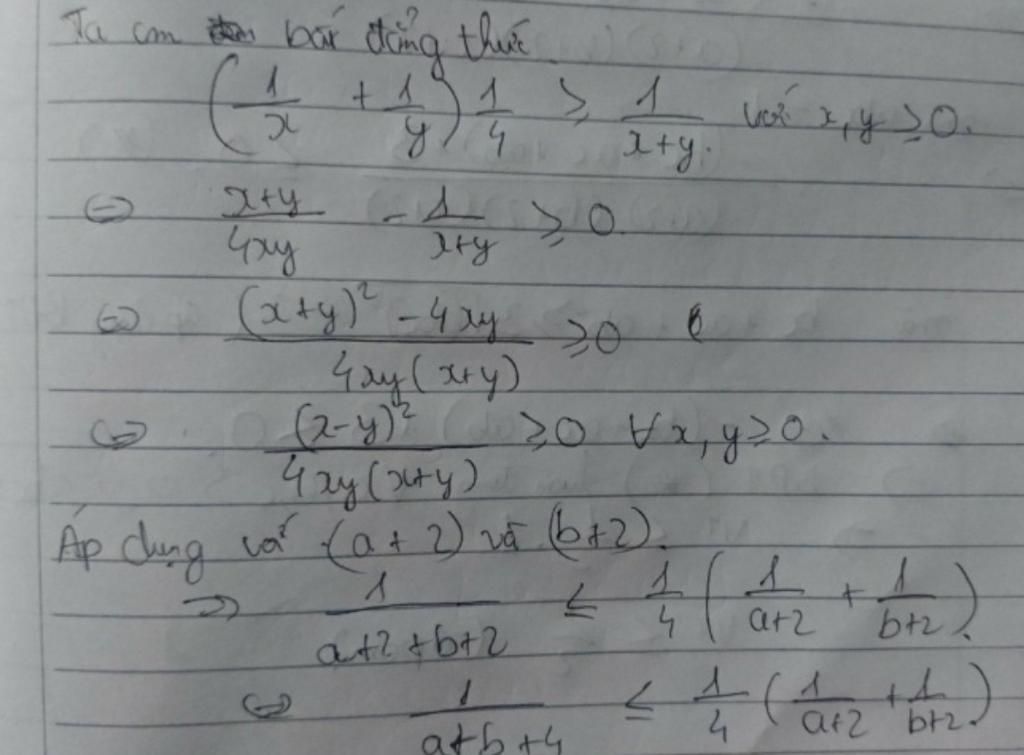 Ta cm bất đẳng thức
(1/x + 1/y) 1/4 ≥ 1/(x+y) với x, y ≥ 0.
⇔ (x+y)/(4xy) - 1/(x+y) ≥ 0.
⇔ ((x+y)² - 4xy)/(4xy(x+y)) ≥ 0
⇔ (x-y)²/(4xy(x+y)) ≥ 0 ∀x, y ≥ 0.
Áp dụng với (a+2) và (b+2).
⇒ 1/(a+2+b+2) ≤ 1/4 (1/(a+2) + 1/(b+2)).
⇔ 1/(a+b+4) ≤ 1/4 (1/(a+2) + 1/(b+2).)